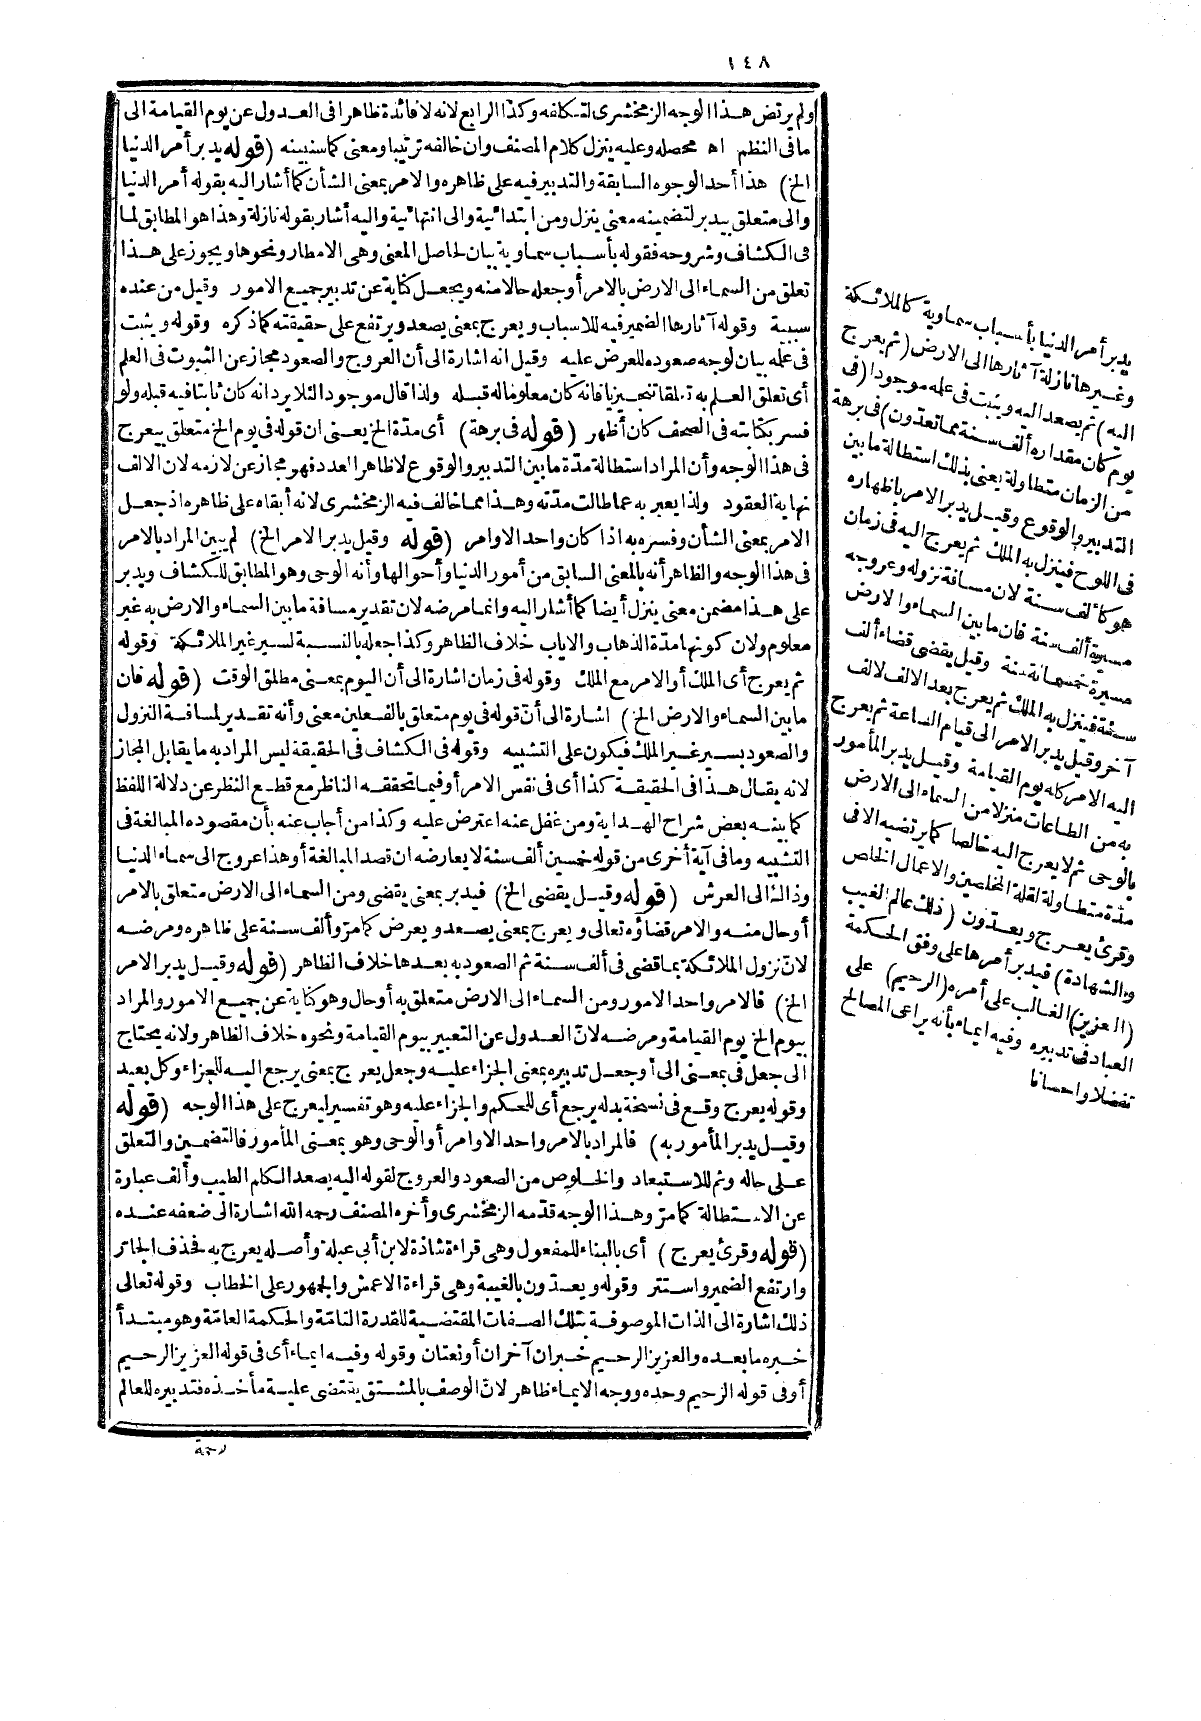 ١٤٨
ولم يرتض هذا الوجه الزمخشرى لتكلفه وكذا الرابع لانه لا فائدة ظاهرا فى العدول عن يوم القيامة الى
ما فى النظم اه محصله وعليه ينزل كلام المصنف وان خالفه ترتيبا ومعنى كما سنبينه (قوله يدبر أمر الدنيا
الخ) هذا أحد الوجوه السابقة والتدبير فيه على ظاهره والامر بمعنى الشأن كما أشار اليه بقوله أمر الدنيا
والى متعلق بيدبر لتضمينه معنى ينزل ومن ابتدائية والى انتهائية واليه أشار بقوله نازلة وهذا هو المطابق لما
فى الكشاف وشروحه فقوله بأسباب سماوية بيان لحاصل المعنى وهى الامطار ونحوها ويجوز على هذا
تعلق من السماء الى الارض بالامر أو جعله حالا منه ويجعل كناية عن تدبير جميع الامور وقيل من عنده
سببية وقوله آثارها الضمير فيه للاسباب ويعرج بمعنى يصعد ويرتفع على حقيقته كما ذكره وقوله ويثبت
فى علمه بيان لوجه صعوده للعرض عليه وقيل انه اشارة الى أن العروج والصعود مجاز عن الثبوت فى العلم
أى تعلق العلم به تعلقا تنجيزيا فانه كان معلوما له قبله ولذا قال موجودا لئلا يرد انه كان ثابتا فيه قبله ولو
فسر بكتابته فى الصحف كان أظهر (قوله فى برهة) أى مدة الخ يعنى ان قوله فى يوم الخ متعلق بيعرج
فى هذا الوجه وأن المراد استطالة مدة ما بين التدبير والوقوع لا ظاهر العدد فهو مجاز عن لازمه لان الالف
نهاية العقود ولذا يعبر به عما طالت مدته وهذا مما خالف فيه الزمخشرى لانه أبقاه على ظاهره اذ جعل
الامر بمعنى الشأن وفسره به اذا كان واحد الاوامر (قوله وقيل يدبر الامر الخ) لم يبين المراد بالامر
فى هذا الوجه والظاهر أنه بالمعنى السابق من أمور الدنيا وأحوالها وأنه الوحى وهو المطابق للكشاف ويدبر
على هذا مضمن معنى ينزل أيضا كما أشار اليه وانما مرضه لان تقدير مسافة ما بين السماء والارض به غير
معلوم ولان كونها مدة الذهاب والاياب خلاف الظاهر وكذا جعله بالنسبة لسير غير الملائكة وقوله
ثم يعرج أى الملك أو الامر مع الملك وقوله فى زمان اشارة الى أن اليوم بمعنى مطلق الوقت (قوله فان
ما بين السماء والارض الخ) اشارة الى أنّ قوله فى يوم متعلق بالفعلين معنى وأنه تقدير لمسافة النزول
والصعود بسير غير الملك فيكون على التشبيه وقوله فى الكشاف فى الحقيقة ليس المراد به ما يقابل المجاز
لانه يقال هذا فى الحقيقة كذا أى فى نفس الامر أو فيما تحققه الناظر مع قطع النظر عن دلالة اللفظ
كما بينه بعض شراح الهداية ومن غفل عنه اعترض عليه وكذا من أجاب عنه بأن مقصوده المبالغة فى
التشبيه وما فى آية أخرى من قوله خمسين ألف سنة لا يعارضه ان قصد المبالغة أو هذا عروج الى سماء الدنيا
وذاك الى العرش (قوله وقيل يقضى الخ) فيدبر بمعنى يقضى ومن السماء الى الارض متعلق بالامر
أو حال منه والامر قضاؤه تعالى ويعرج بمعنى يصعد ويعرض كما مرّ وألف سنة على ظاهره ومرضه
لانّ نزول الملائكة بما قضى فى ألف سنة ثم الصعود به بعدها خلاف الظاهر (قوله وقيل يدبر الامر
الخ) فالامر واحد الامور ومن السماء الى الارض متعلق به أو حال وهو كناية عن جميع الامور والمراد
بيوم الخ يوم القيامة ومرضه لانّ العدول عن التعبير بيوم القيامة ونحوه خلاف الظاهر ولانه يحتاج
الى جعل فى بمعنى الى أو جعل تدبيره بمعنى الجزاء عليه وجعل يعرج بمعنى يرجع اليه للجزاء وكل بعيد
وقوله يعرج وقع فى نسخة بدله يرجع أى للحكم والجزاء عليه وهو تفسير ليعرج على هذا الوجه (قوله
وقيل يدبر المأمور به) فالمراد بالامر واحد الاوامر أو الوحى وهو بمعنى المأمور فالتضمين والتعلق
على حاله وثم للاستبعاد والخلوص من الصعود والعروج لقوله اليه يصعد الكلم الطيب وألف عبارة
عن الاستطالة كما مرّ وهذا الوجه قدمه الزمخشرى وأخره المصنف رحمه الله اشارة الى ضعفه عنده
(قوله وقرئ يعرج) أى بالبناء للمفعول وهى قراءة شاذة لابن أبى عبلة وأصله يعرج به فحذف الجارّ
وارتفع الضمير واستتر وقوله ويعدّون بالغيبة وهى قراءة الاعمش والجمهور على الخطاب وقوله تعالى
ذلك اشارة الى الذات الموصوفة بتلك الصفات المقتضية للقدرة التامّة والحكمة العامّة وهو مبتدأ
خبره ما بعده والعزيز الرحيم خبران آخران أو نعتان وقوله وفيه ايماء أى فى قوله العزيز الرحيم
أو فى قوله الرحيم وحده ووجه الايماء ظاهر لانّ الوصف بالمشتق يقتضى علية مأخذه فتدبيره للعالم
لرحمة
يدبر أمر الدنيا بأسباب سماوية كالملائكة
وغيرها نازلة آثارها الى الارض (ثم يعرج
اليه) ثم يصعد اليه ويثبت فى علمه موجودا (فى
يوم كان مقداره ألف سنة مما تعدون) فى برهة
من الزمان متطاولة يعنى بذلك استطالة ما بين
التدبير والوقوع وقيل يدبر الامر باظهاره
فى اللوح فينزل به الملك ثم يعرج اليه فى زمان
هو كألف سنة لان مسافة نزوله وعروجه
مسيرة ألف سنة فان ما بين السماء والارض
مسيرة خمسمائة سنة وقيل يقضى قضاء ألف
سنة فينزل به الملك ثم يعرج بعد الالف لالف
آخر وقيل يدبر الامر الى قيام الساعة ثم يعرج
اليه الامر كله يوم القيامة وقيل يدبر المأمور
به من الطاعات منزلا من السماء الى الارض
بالوحى ثم لا يعرج اليه خالصا كما يرتضيه الا فى
مدّة متطاولة لقلة المخلصين والاعمال الخلص
وقرئ يعرج ويعدّون (ذلك عالم الغيب
والشهادة) فيدبر أمرها على وفق الحكمة
(العزيز) الغالب على أمره (الرحيم) على
العباد فى تدبيره وفيه ايماء بأنه يراعى المصالح
تفضلا واحسانا